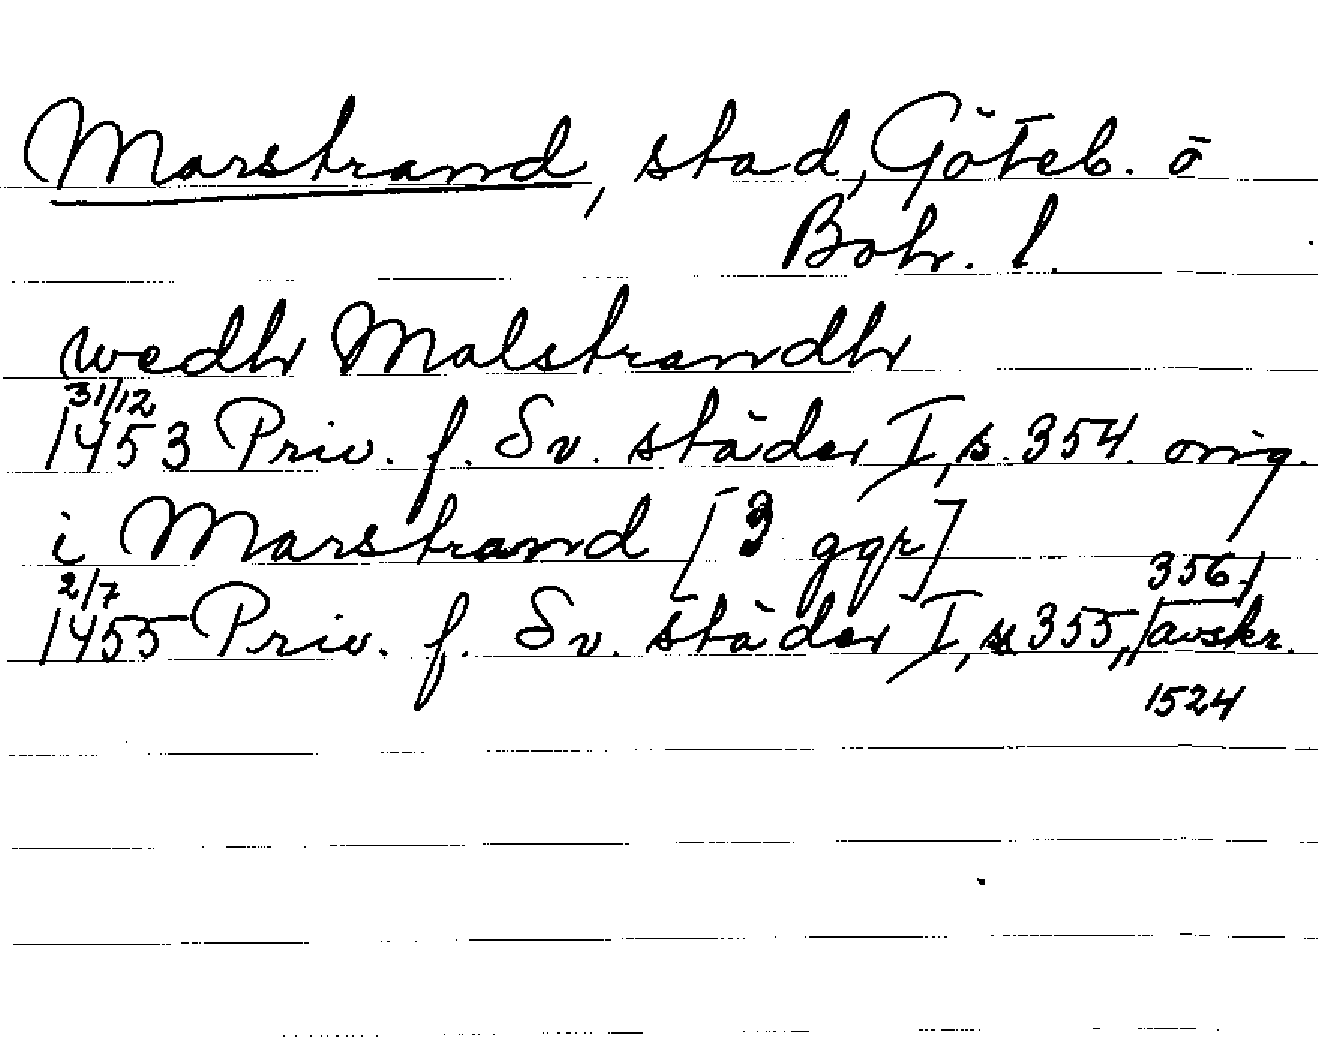 Marstrand, stad, Göteb. o
Boh. l.
wedh Malstrandh
31/12
1453 Priv. f. Sv. städer I, s. 354. orig.
i Marstrand [3 ggr]
2/7
1455 Priv. f. Sv. städer I, s 355, 356. avskr.
1524